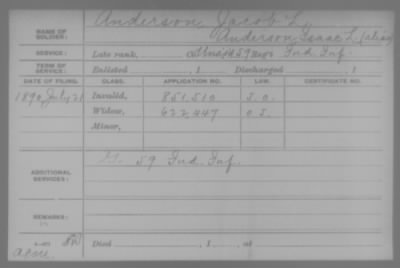 Anderson, Jacob L.
NAME OF SOLDIER: Anderson, Isaac L. (alias)
SERVICE: Late rank, Co. 59 Reg't Ind. Inf.
TERM OF SERVICE: Enlisted , 1 Discharged , 1
DATE OF FILING. CLASS. APPLICATION NO. LAW. CERTIFICATE NO.
1890 July 21 Invalid, 851,510
Widow, 622,447
Minor,
ADDITIONAL SERVICES: 59 Ind. Inf.
REMARKS:
Died , 1 , at